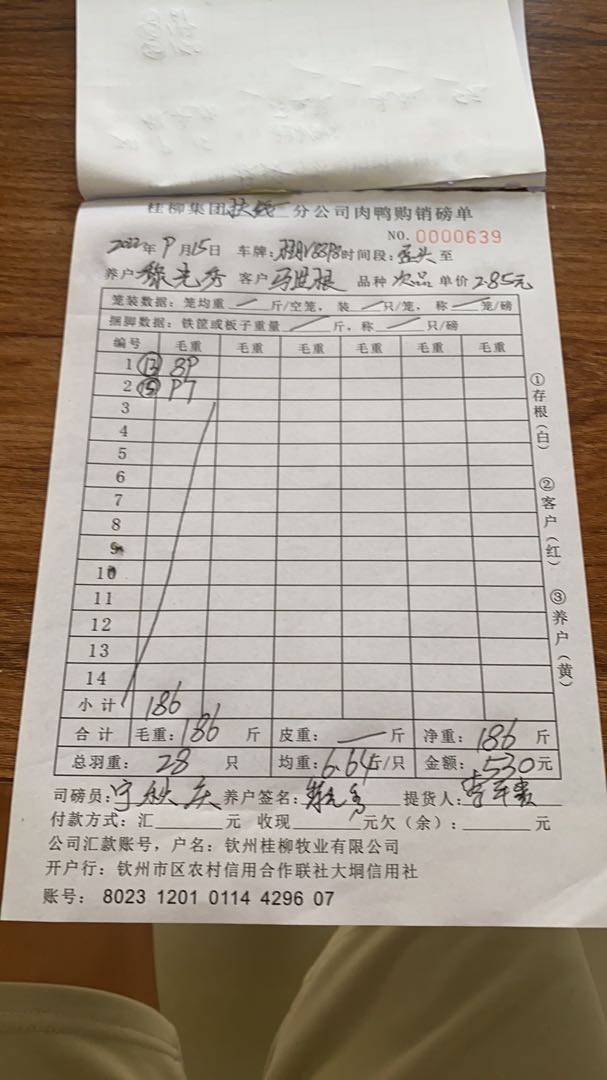 桂柳集团扶绥分公司肉鸭购销磅单
NO. 0000639
2022年9月15日 车牌: 时间段: 至
养户 光秀 客户 马世根 品种 次品 单价 2.85元
笼装数据: 笼均重 — 斤/空笼, 装 — 只/笼, 称 — 笼/磅
捆脚数据: 铁筐或板子重量 — 斤, 称 — 只/磅
编号 毛重 毛重 毛重 毛重 毛重 毛重
1 ⑬ 89
2 ⑮ 97
3
4
5
6
7
8
9
10
11
12
13
14
小计 186
合计 毛重: 186 斤 皮重: — 斤 净重: 186 斤
总羽重: 28 只 均重: 6.64斤/只 金额: 530元
司磅员: 养户签名: 提货人:
付款方式: 汇____元 收现____元欠(余):____元
公司汇款账号, 户名: 钦州桂柳牧业有限公司
开户行: 钦州市区农村信用合作联社大垌信用社
账号: 8023 1201 0114 4296 07
①存根(白)
②客户(红)
③养户(黄)